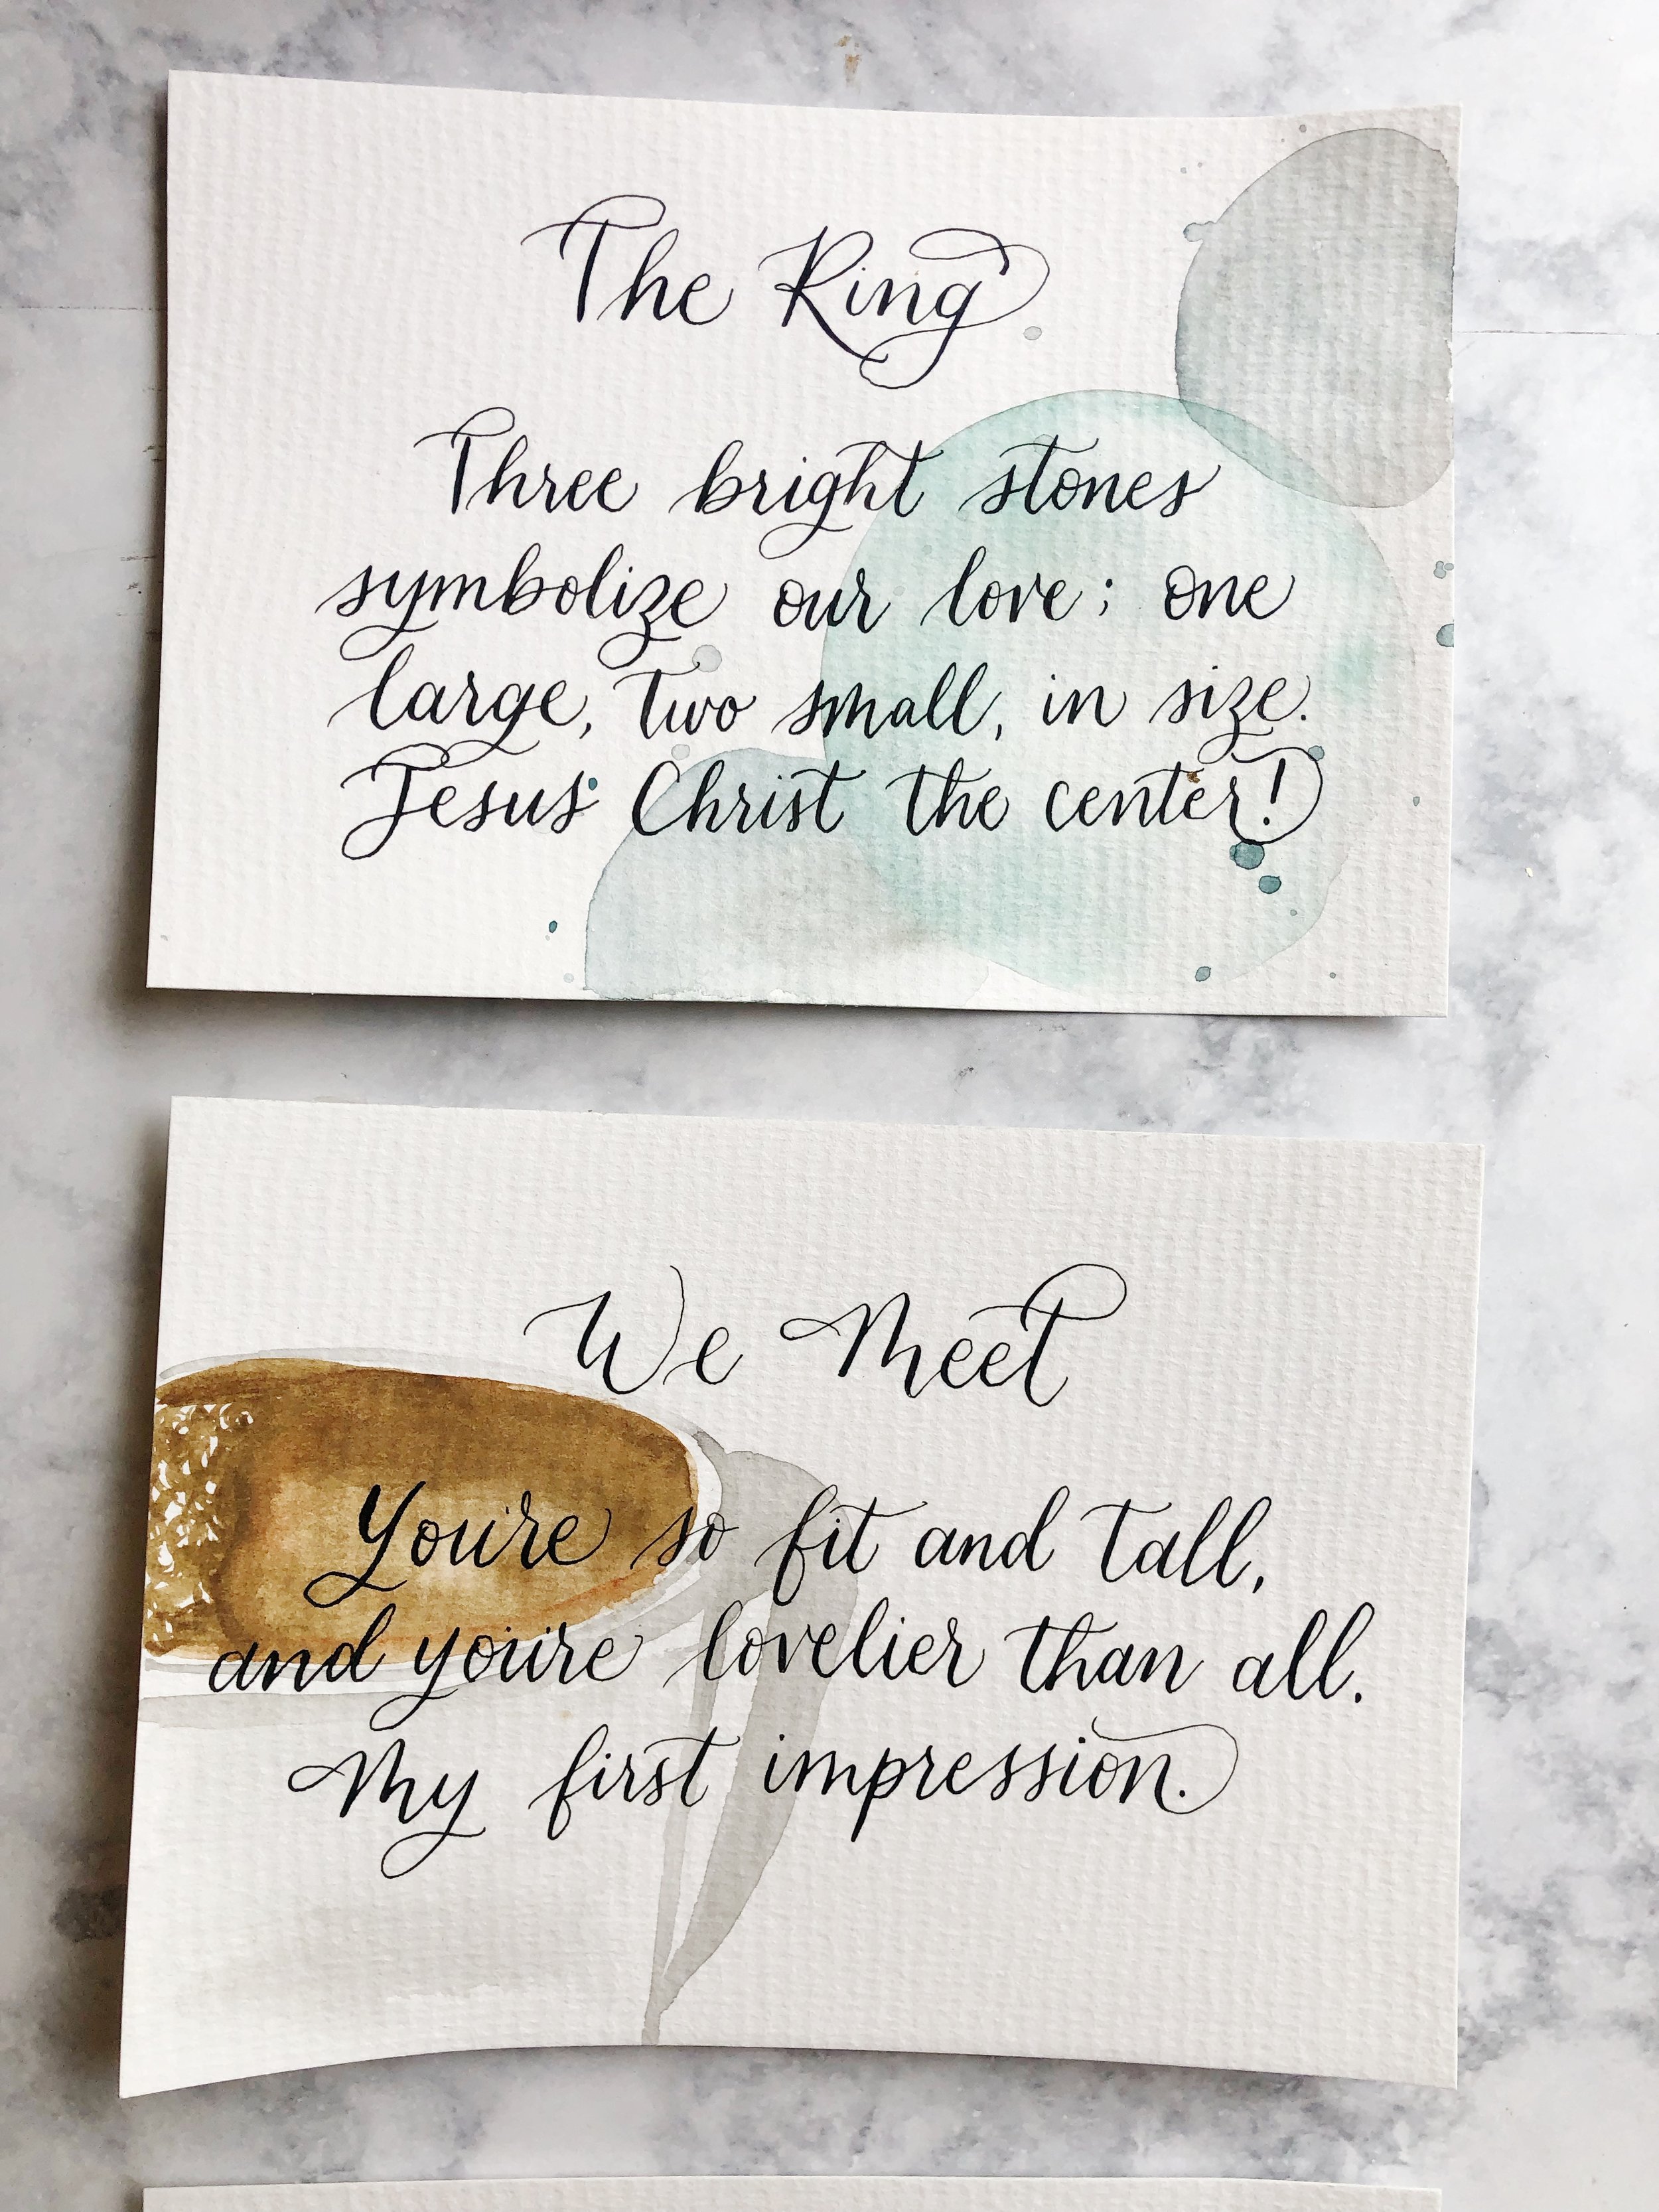 The Ring
Three bright stones
symbolize our love; one
large, two small, in size.
Jesus Christ the center!
We Meet
You're so fit and tall,
and you're lovelier than all.
My first impression.